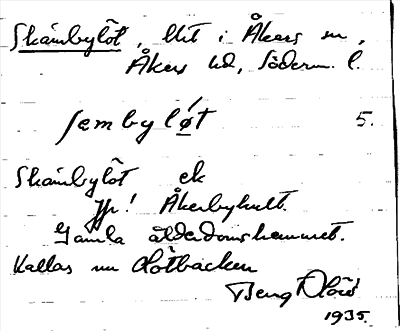 Skämbylöt, lht i Åkers sn,
Åkers hd, Söderm. l.
sæmbyløt 5.
Skämbylöt ek
Jfr! Åkerbyhult.
Gamla ålderdomshemmet.
Kallas nu Lötbacken
Bengt
1935.